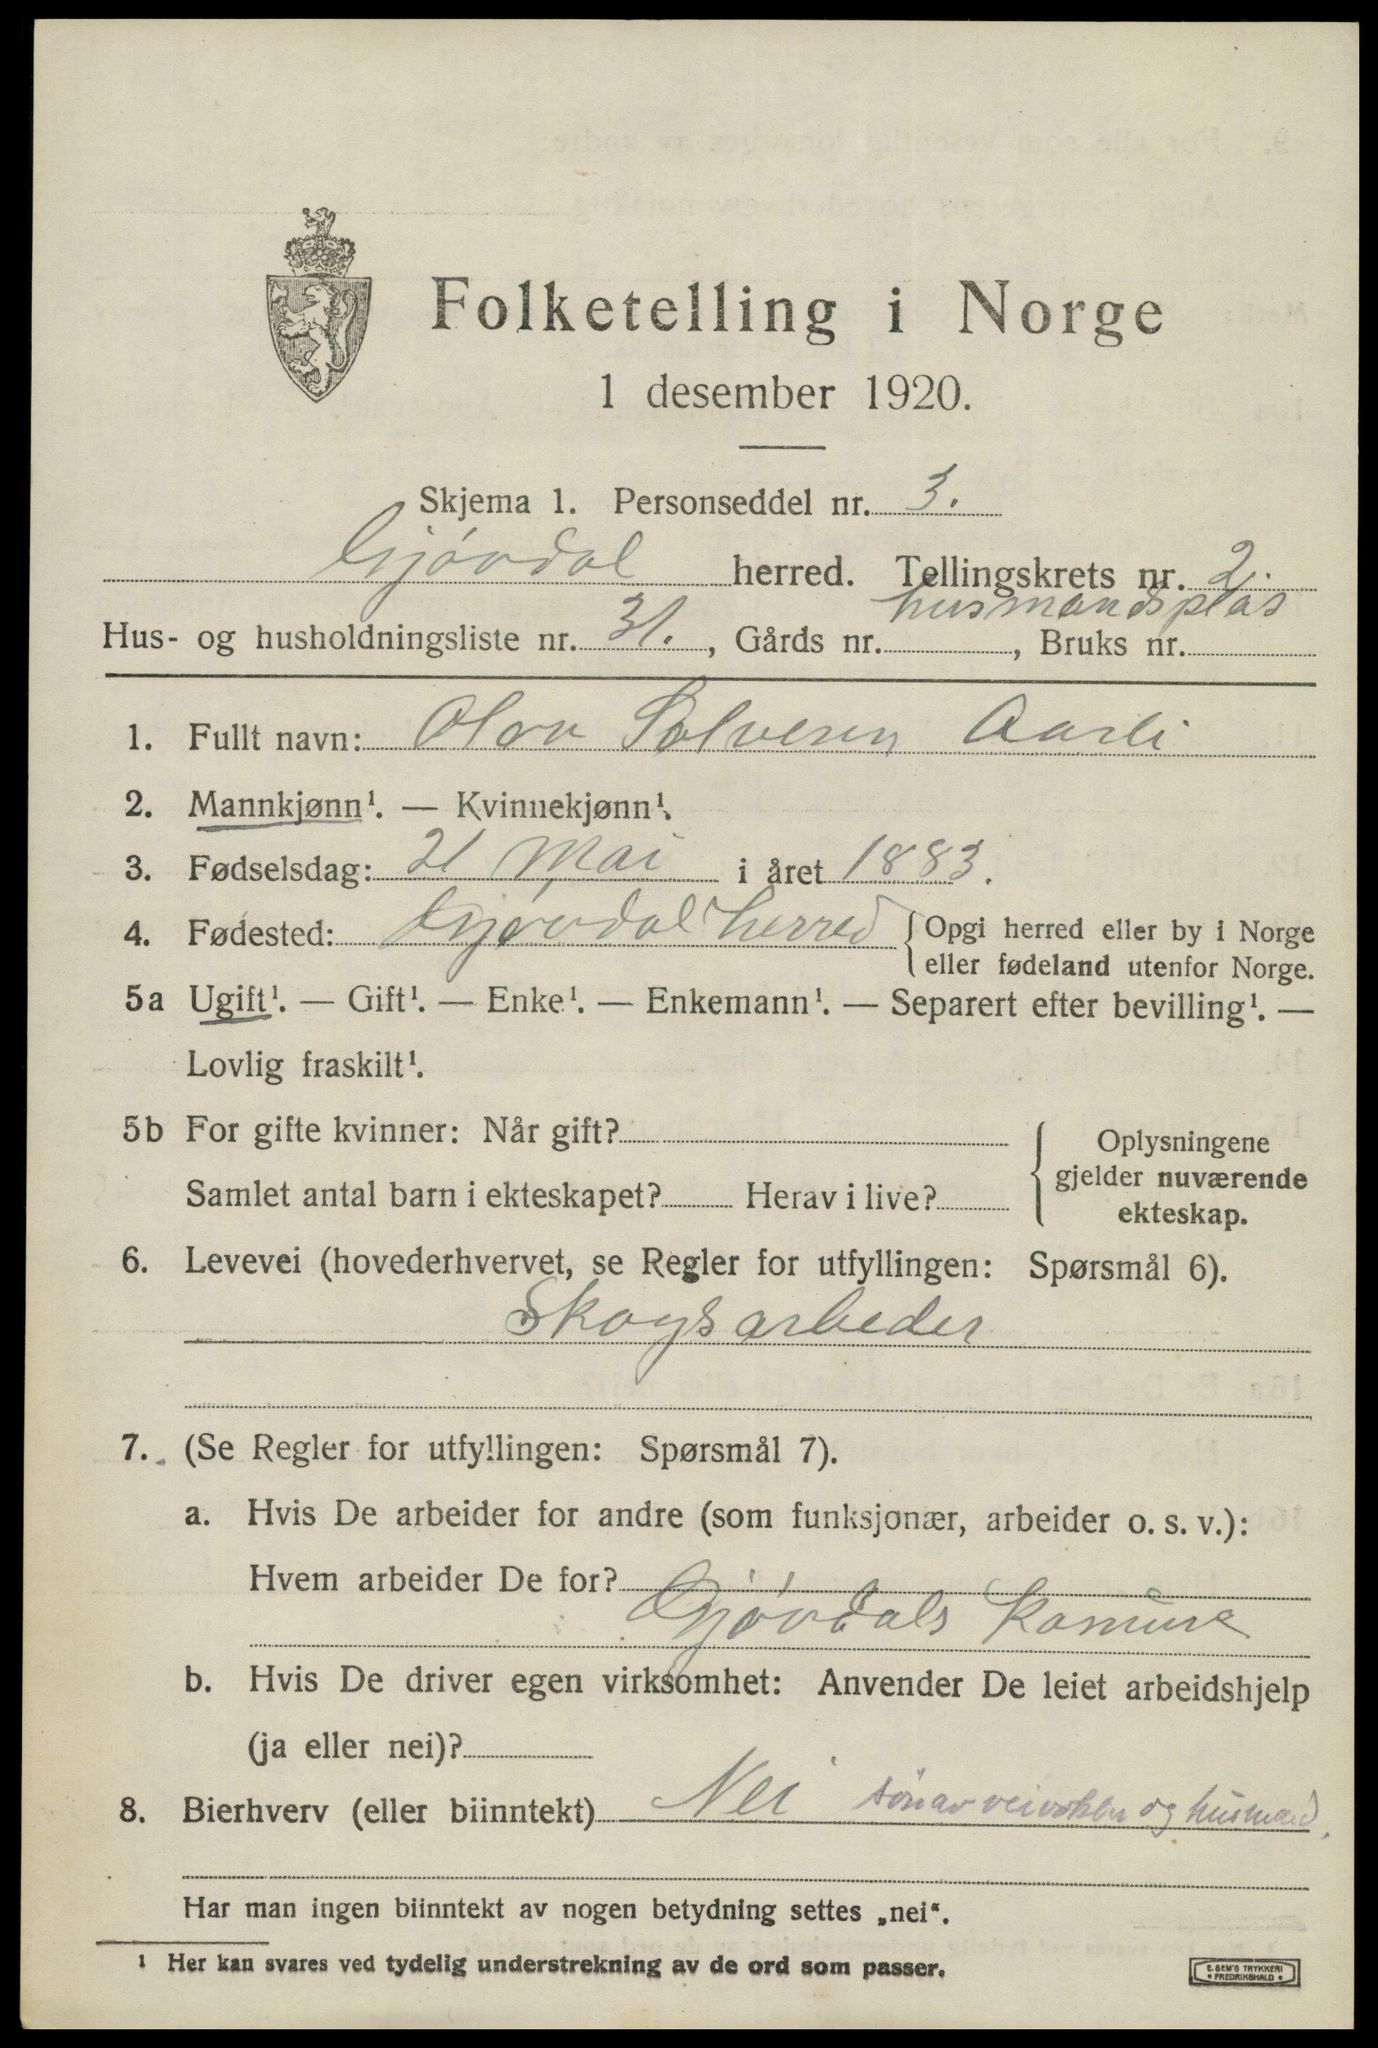 Folketelling i Norge
1 desember 1920.
Skjema 1. Personseddel nr. 3.
Gjövdal herred. Tellingskrets nr. 2.
husmandsplas
Hus- og husholdningsliste nr. 31., Gårds nr. , Bruks nr.
1. Fullt navn: Olav Salvesen Aasli
2. Mannkjønn¹. — Kvinnekjønn¹.
3. Fødselsdag: 21 Mai i året 1883.
4. Fødested: Gjövdal herred { Opgi herred eller by i Norge
eller fødeland utenfor Norge.
5a Ugift¹. — Gift¹. — Enke¹. — Enkemann¹. — Separert efter bevilling¹. —
Lovlig fraskilt¹.
5b For gifte kvinner: Når gift?
Samlet antal barn i ekteskapet? Herav i live?
Oplysningene
gjelder nuværende
ekteskap.
6. Levevei (hovederhvervet, se Regler for utfyllingen: Spørsmål 6).
Skogsarbeder
7. (Se Regler for utfyllingen: Spørsmål 7).
a. Hvis De arbeider for andre (som funksjonær, arbeider o. s. v.):
Hvem arbeider De for?
Gjövdals Komune
b. Hvis De driver egen virksomhet: Anvender De leiet arbeidshjelp
(ja eller nei)?
8. Bierhverv (eller biinntekt) Nei sönav veivokter og husmand.
Har man ingen biinntekt av nogen betydning settes „nei“.
¹ Her kan svares ved tydelig understrekning av de ord som passer.
E. SEM'S TRYKKERI
FREDRIKSHALD